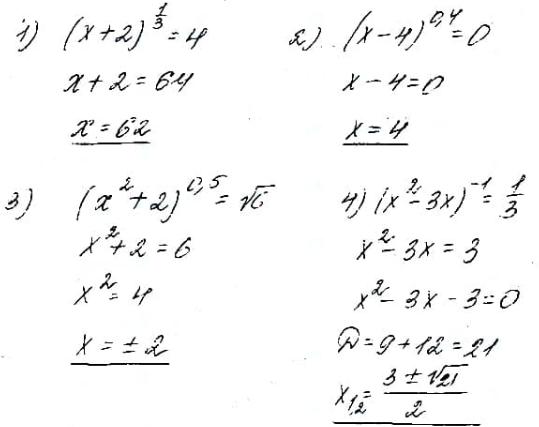 1) (x+2)^{1/3} = 4
x + 2 = 64
x = 62
2) (x-4)^{0,4} = 0
x - 4 = 0
x = 4
3) (x^2+2)^{0,5} = √6
x^2 + 2 = 6
x^2 = 4
x = ±2
4) (x^2 - 3x)^{-1} = 1/3
x^2 - 3x = 3
x^2 - 3x - 3 = 0
D = 9 + 12 = 21
x_{1,2} = (3 ± √21)/2